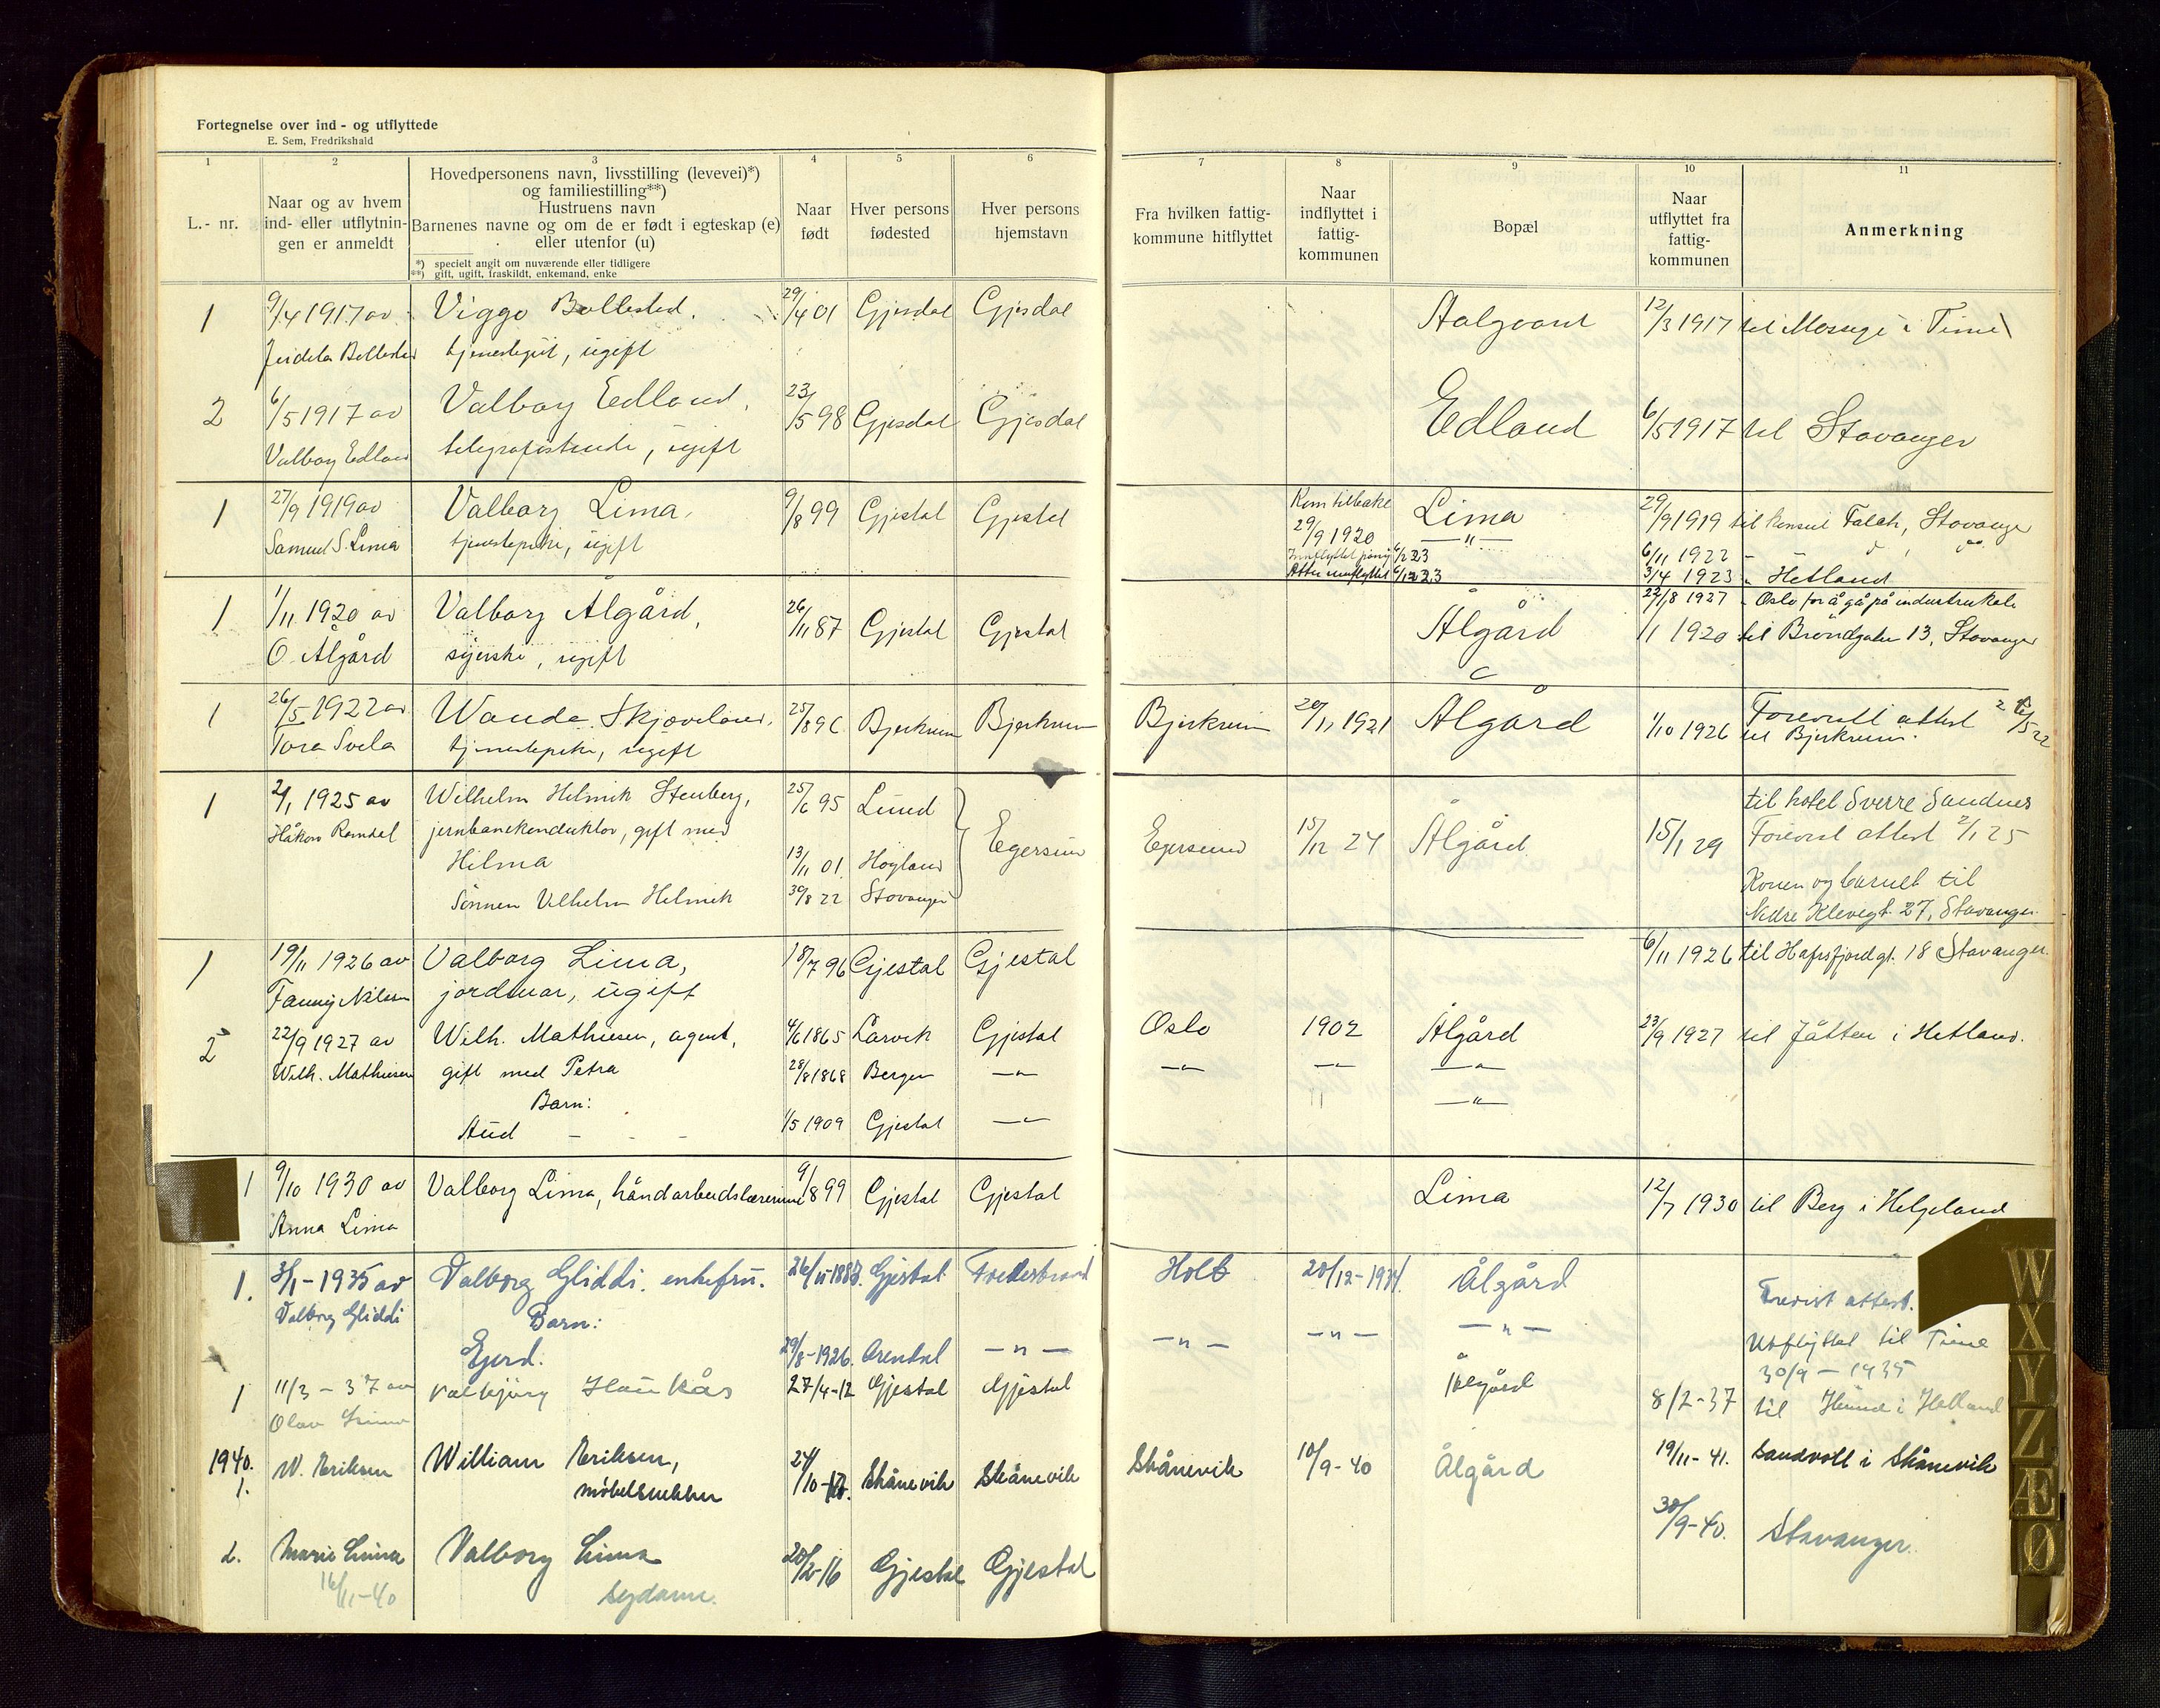 Fortegnelse over ind- og utflyttede
E. Sem, Fredrikshald
1 2 3 4 5 6 7 8 9 10 11
L.- nr.
Naar og av hvem
ind- eller utflytnin-
gen er anmeldt
Hovedpersonens navn, livsstilling (levevei)*)
og familiestilling**)
Hustruens navn
Barnenes navne og om de er født i egteskap (e)
eller utenfor (u)
*) specielt angit om nuværende eller tidligere
**) gift, ugift, fraskildt, enkemand, enke
Naar
født
Hver persons
fødested
Hver persons
hjemstavn
Fra hvilken fattig-
kommune hitflyttet
Naar
indflyttet i
fattig-
kommunen
Bopæl
Naar
utflyttet fra
fattig-
kommunen
Anmerkning
1 9/4 1917 av Viggo 29/4 01 Gjesdal Gjesdal Aalgaard 12/3 1917 til i Time
ugift
2 6/5 1917 av Valborg Edland, 23/5 98 Gjesdal Gjesdal Edland 6/5 1917 til Stavanger
Valborg Edland ugift
1 27/9 1919 av Valborg Lima, 9/8 99 Gjestal Gjestal Kom tilbake 29/9 1920 Lima 29/9 1919 til konsul Falch, Stavanger
Samuel S. Lima tjenestepike, ugift — " — 6/11 1922
3/4 1923 " Hetland
1927 " Oslo for å gå på
1 1/11 1920 av Valborg Ålgård, 26/11 87 Gjestal Gjestal Ålgård 1/1 1920 til Brøndgaten 13, Stavanger
O. Ålgård syerske, ugift
1 26/5 1922 av Wanda Skjæveland, 25/8 96 Bjerkreim Bjerkreim Bjerkreim 20/11 1921 Ålgård 1/10 1926 Forevist attest
Tora Svela tjenestepike, ugift til Bjerkreim.
1 2/1 1925 av Wilhelm Helmik Stenberg, 25/6 95 Lund Egersund Egersund 15/12 24 Ålgård 15/1 29 til hotel Sverre Sandnes
Håkon jernbanekonduktør, gift med Forevist attest 2/1 25
Hilma 13/11 01. Høyland Konen og barnet til
Sønnen Vilhelm Helmik 30/8 22 Stavanger Nedre Klevegt. 27, Stavanger.
1 19/11 1926 av Valborg Lima, 18/7 96 Gjestal Gjestal 6/11 1926 til Hafrsfjordgt. 18 Stavanger.
Fanny Nilsen jordmor, ugift
2 22/9 1927 av Wilh. Mathiesen, agent, 4/6 1865 Larvik Gjestal Oslo 1902 Ålgård 23/9 1927 til Jåtten i Hetland.
Wilh. Mathiesen gift med Petra 28/8 1868 Bergen — " — — " — — " — — " —
Barn: — " —
Aud 1/5 1909 Gjestal — " —
1 9/10 1930 av Valborg Lima, håndarbeidslærerinne 9/8 99 Gjestal Gjestal Lima 12/7 1930 til Berg i Helgeland
Anna Lima
1. 3/1 - 1935 av Valborg Gliddi. enkefru. Gjestal Holt 20/12 - 1934. Ålgård
Valborg Gliddi Barn: attest.
29/8 - 1926. Arendal — " — — " — — " — — " — Utflyttet til Time
30/9 - 1935
1 11/3 - 37 av Valbjørg Haukås 27/4 - 12 Gjestal Gjestal Ålgård 8/2 - 37 til i Hetland
Olav Lima
1940.
1. W. Eriksen William Eriksen, Skånevik Skånevik Skånevik 10/9 - 40 Ålgård 19/11 - 41. Sandvoll i Skånevik
møbelsnekker
2. Marie Lima Valborg Lima 20/2 - 16 Gjestal Gjestal 30/9 - 40. Stavanger.
16/11 - 40 sydame.
W
X
Y
Z
Æ
Ø